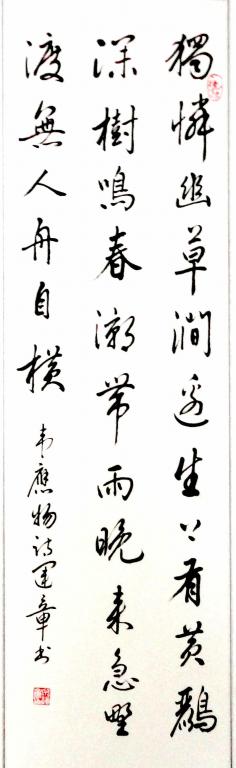 獨憐幽草澗邊生上有黃鸝
深樹鳴春潮帶雨晚來急野
渡無人舟自橫
韦應物诗運章书